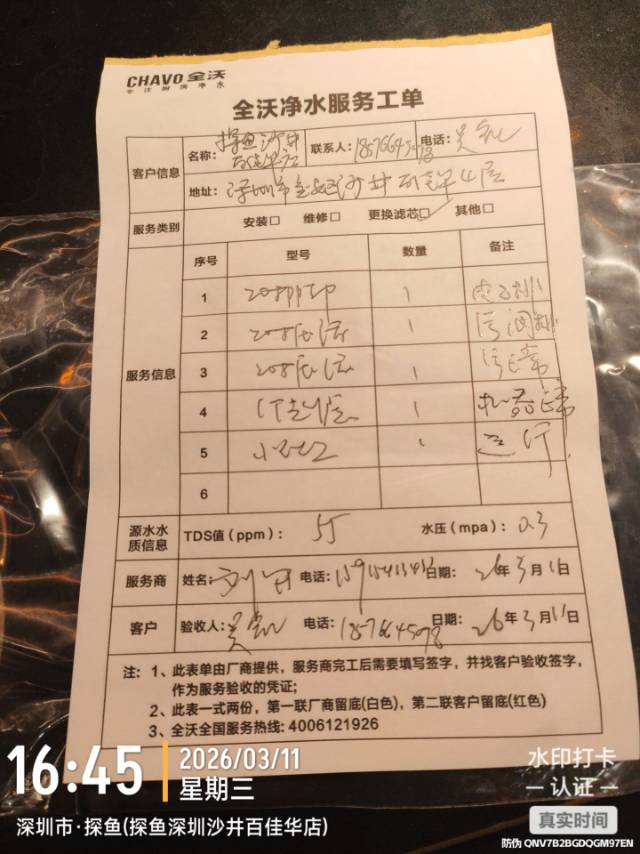 CHAVO 全沃
专注厨房净水
全沃净水服务工单
客户信息
名称: 探鱼沙井百佳华店 联系人: 电话: 吴
地址: 深圳市宝安区沙井百佳华4层
服务类别 安装□ 维修□ 更换滤芯□ 其他□
服务信息
序号 型号 数量 备注
1 1
2 1
3 1 正常
4 1 机器正常
5 1 运行
6
源水水质信息 TDS值(ppm): 55 水压(mpa): 0.3
服务商 姓名: 刘 电话: 日期: 26年3月11日
客户 验收人: 吴 电话: 日期: 26年3月11日
注: 1、此表单由厂商提供，服务商完工后需要填写签字，并找客户验收签字，
作为服务验收的凭证；
2、此表一式两份，第一联厂商留底(白色)，第二联客户留底(红色)
3、全沃全国服务热线: 4006121926
16:45
2026/03/11
星期三
深圳市·探鱼(探鱼深圳沙井百佳华店)
水印打卡
认证
真实时间
防伪 QNV7B2BGDQGM97EN